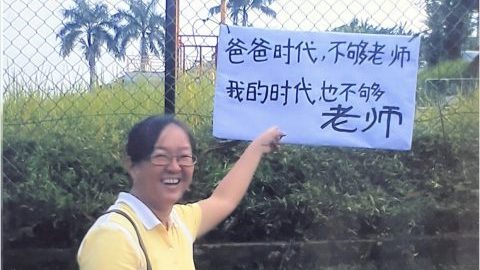 爸爸时代，不够老师
我的时代，也不够
老师